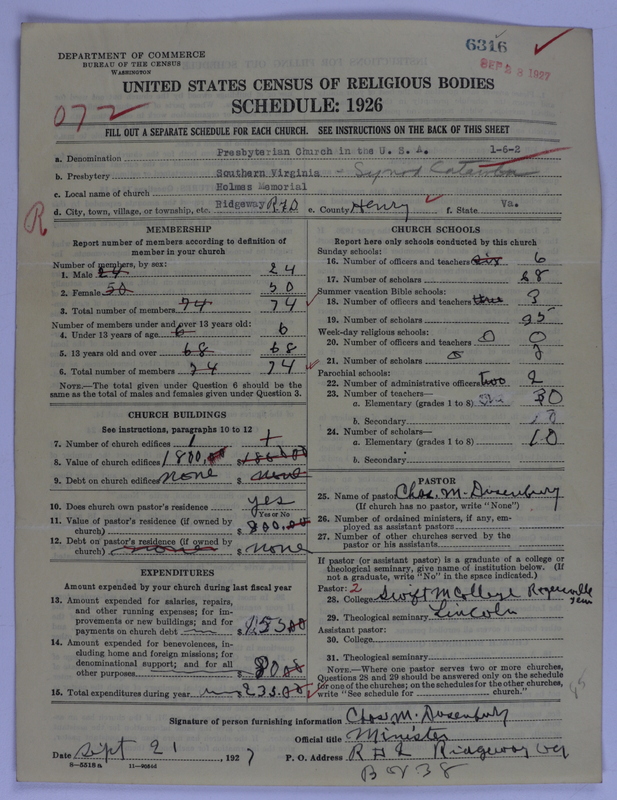 6316
SEP 23 1927
DEPARTMENT OF COMMERCE
BUREAU OF THE CENSUS
WASHINGTON
UNITED STATES CENSUS OF RELIGIOUS BODIES
SCHEDULE: 1926
072
FILL OUT A SEPARATE SCHEDULE FOR EACH CHURCH. SEE INSTRUCTIONS ON THE BACK OF THIS SHEET
a. Denomination Presbyterian Church in the U. S. A. 1-6-2
b. Presbytery Southern Virginia - Synod Catawba
c. Local name of church Holmes Memorial
d. City, town, village, or township, etc. Ridgeway RFD e. County Henry f. State Va.
R
MEMBERSHIP
Report number of members according to definition of
member in your church
Number of members, by sex:
1. Male 24 24
2. Female 50 50
3. Total number of members 74 74
Number of members under and over 13 years old:
4. Under 13 years of age 6 6
5. 13 years old and over 68 68
6. Total number of members 74 74
NOTE.—The total given under Question 6 should be
same as the total of males and females given under Question 3.
CHURCH BUILDINGS
See instructions, paragraphs 10 to 12
7. Number of church edifices 1
8. Value of church edifices 1800.00 $
9. Debt on church edifices none $ none
10. Does church own pastor's residence yes
Yes or No
11. Value of pastor's residence (if owned by
church) $ 800.00
12. Debt on pastor's residence (if owned by
church) none $ none
EXPENDITURES
Amount expended by your church during last fiscal year
13. Amount expended for salaries, repairs,
and other running expenses; for im-
provements or new buildings; and for
payments on church debt $ 153.00
14. Amount expended for benevolences, in-
cluding home and foreign missions; for
denominational support; and for all
other purposes $ 80.00
15. Total expenditures during year $ 233.00
CHURCH SCHOOLS
Report here only schools conducted by this church
Sunday schools:
16. Number of officers and teachers six 6
17. Number of scholars 68
Summer vacation Bible schools:
18. Number of officers and teachers three 3
19. Number of scholars 95
Week-day religious schools:
20. Number of officers and teachers 0 0
21. Number of scholars 0 0
Parochial schools:
22. Number of administrative officers two 2
23. Number of teachers—
a. Elementary (grades 1 to 8) 30
b. Secondary 10
24. Number of scholars—
a. Elementary (grades 1 to 8) 10
b. Secondary
PASTOR
25. Name of pastor Chas. M. Dusenbury
(If church has no pastor, write "None")
26. Number of ordained ministers, if any, em-
ployed as assistant pastors
27. Number of other churches served by the
pastor or his assistants
If pastor (or assistant pastor) is a graduate of a college or
theological seminary, give name of institution below. (If
not a graduate, write "No" in the space indicated.)
Pastor: 2
28. College Swift M College Rogersville Tenn
29. Theological seminary Lincoln
Assistant pastor:
30. College
31. Theological seminary
NOTE.—Where one pastor serves two or more churches,
Questions 28 and 29 should be answered only on the schedule
for one of the churches; on the schedules for the other churches,
write "See schedule for church."
Signature of person furnishing information Chas. M. Dusenbury
Official title Minister
Date Sept 21, 1927 P. O. Address R # 2 Ridgeway Va
8—5518 a
Box 38